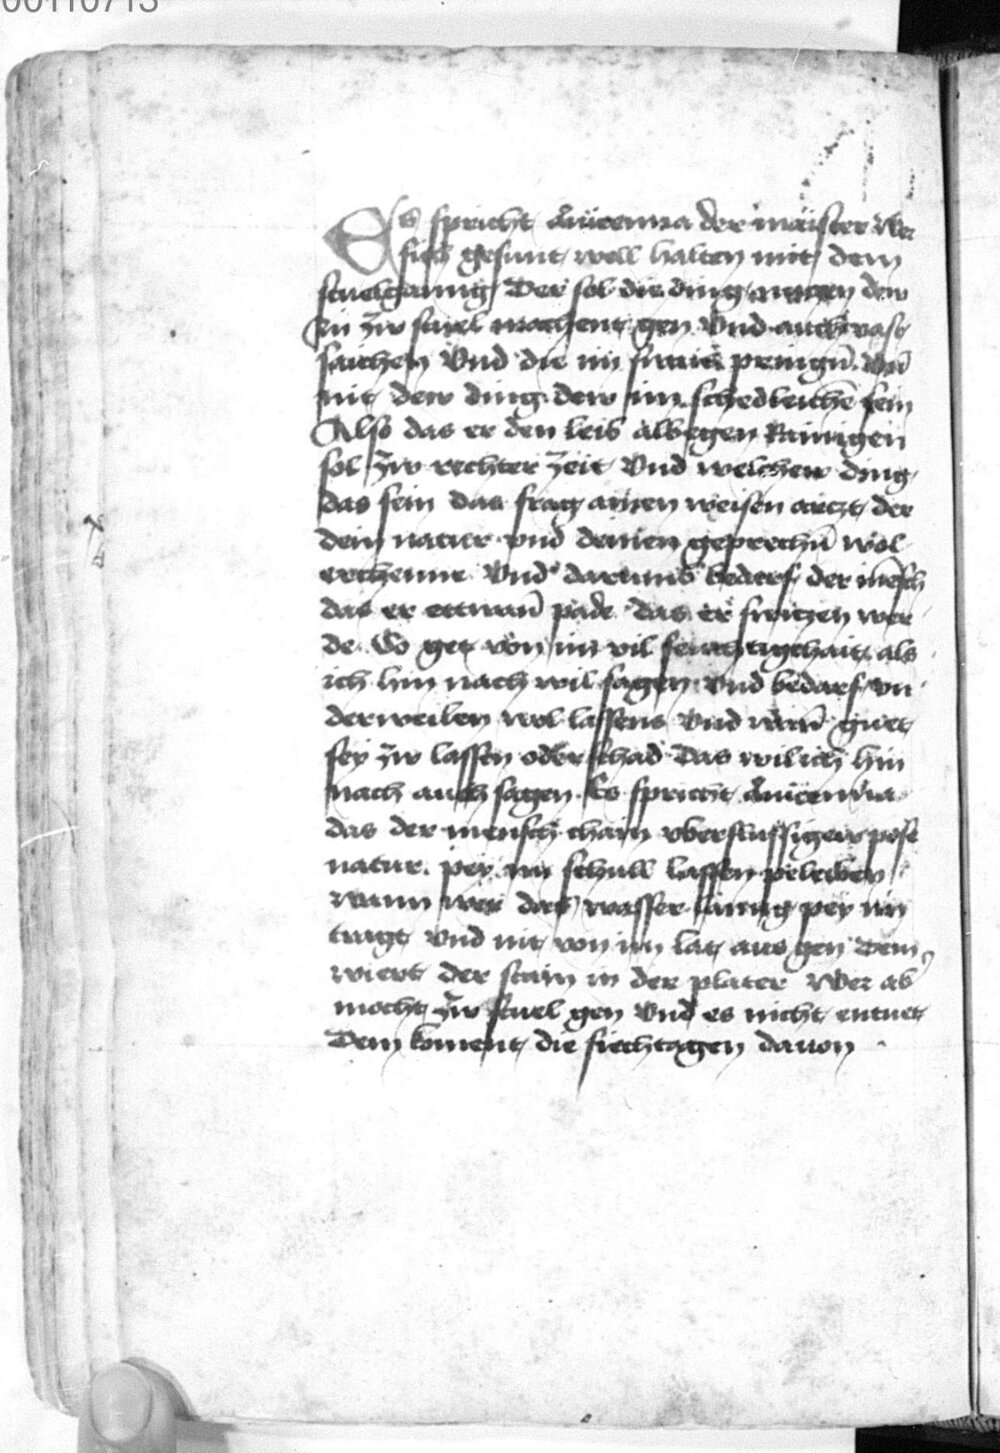 00110713
Es spricht Auicenna der maister Wer
sich gesunt well halten mit dem
stuelganng Der sol die ding nuczen dew
in zw stuel machent gen Vnd auch vast
saichen Vnd die im pringn̄ Vn̄
mit dew ding dew im schedleichē sein
Also das er den leib albegen Rainigen
sol zw rechter zeit Vnd welchew ding
das sein das frag ainen weisen arczt der
dein natur vnd deinen geprechn̄ wol
erchenne Vnd darumb bedarf der mēsch
das er ettwan̄ pade das er switzen wer
de So get von im vil feuchtigchait als
ich hin nach wil sagen Vnd bedarf vn
derweilen wol lassens Vnd wan̄ guet
sey zw lassen oder schad Das wil ich hin
nach auch sagen Es spricht Auicenna
das der mensch chain vberflussigew pose
natur pey im schull lassen peleiben
wann wer das wasser lanng pey im
tragt Vnd nit von im lat aus gen Dem
wiert der stain in der plater Wer ab
mocht zw stuel gen Vnd es nicht entuet
Dem koment die siechtagen dauon